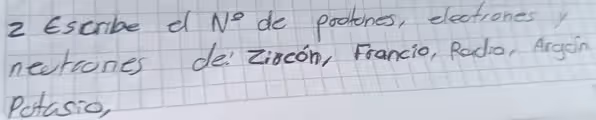 2 Escribe el Nº de protones, electrones y
neutrones de: Zircón, Francio, Radio, Argón
Potasio,